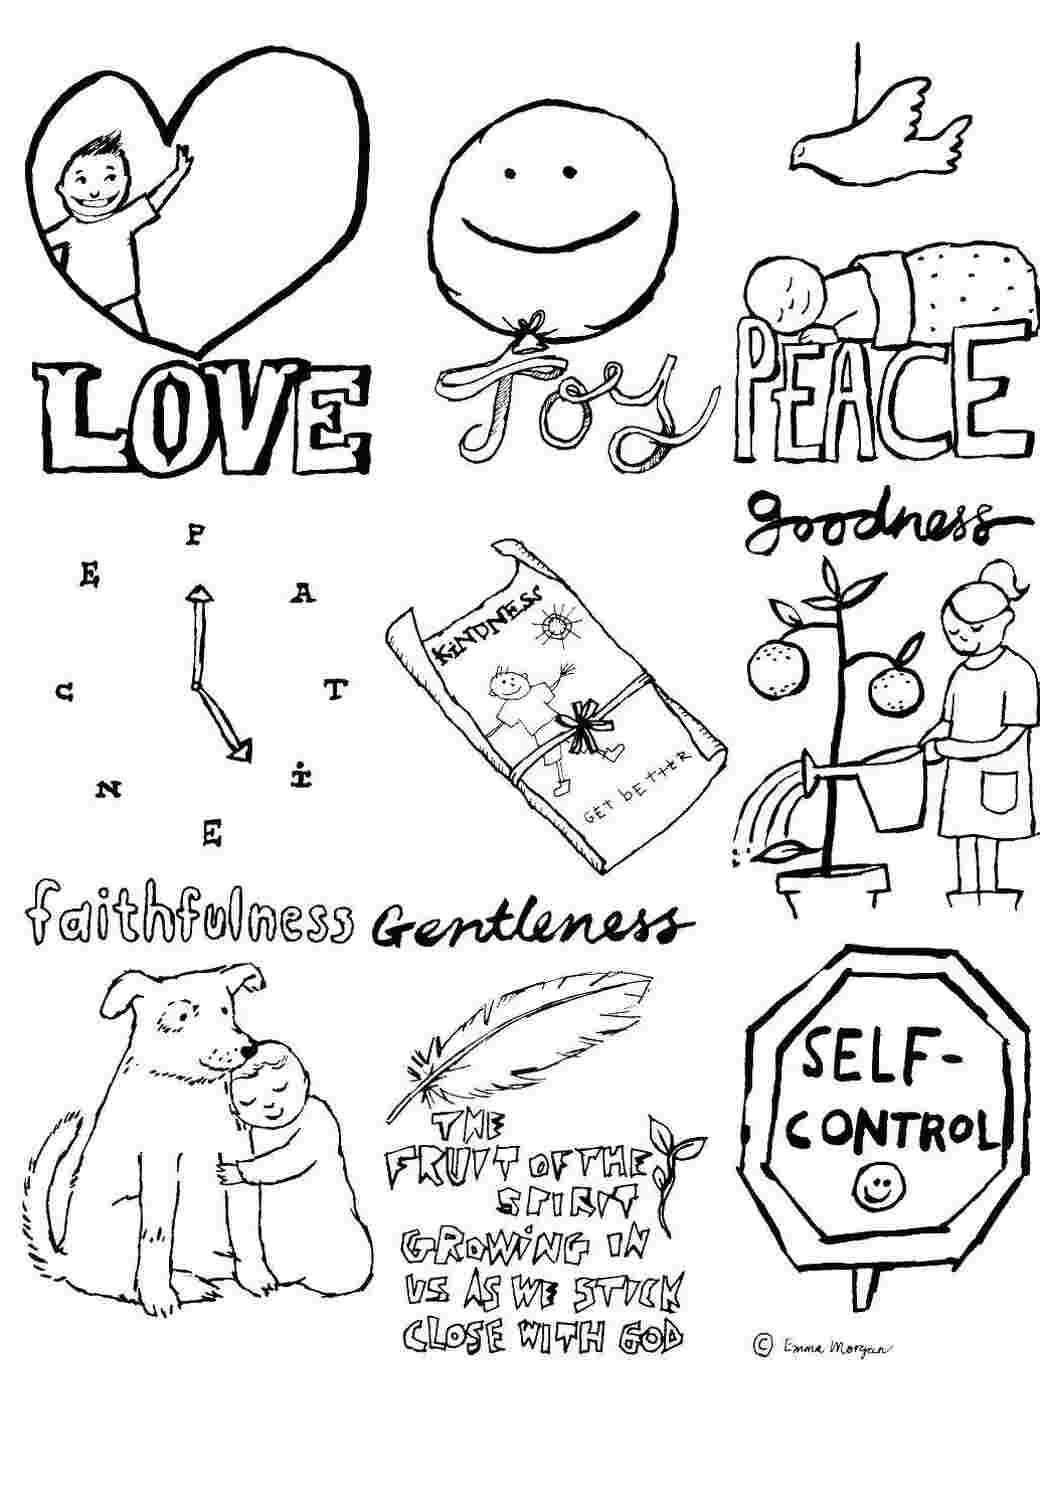 LOVE
Joy
PEACE
PATIENCE
KiNDNESS
GET bETTER
goodness
faithfulness
Gentleness
THE
FRUIT OF THE
SPIRIT
GROWiNG IN
US AS WE STICK
CLOSE WITH GOD
SELF-
CONTROL
© Emma Morgan